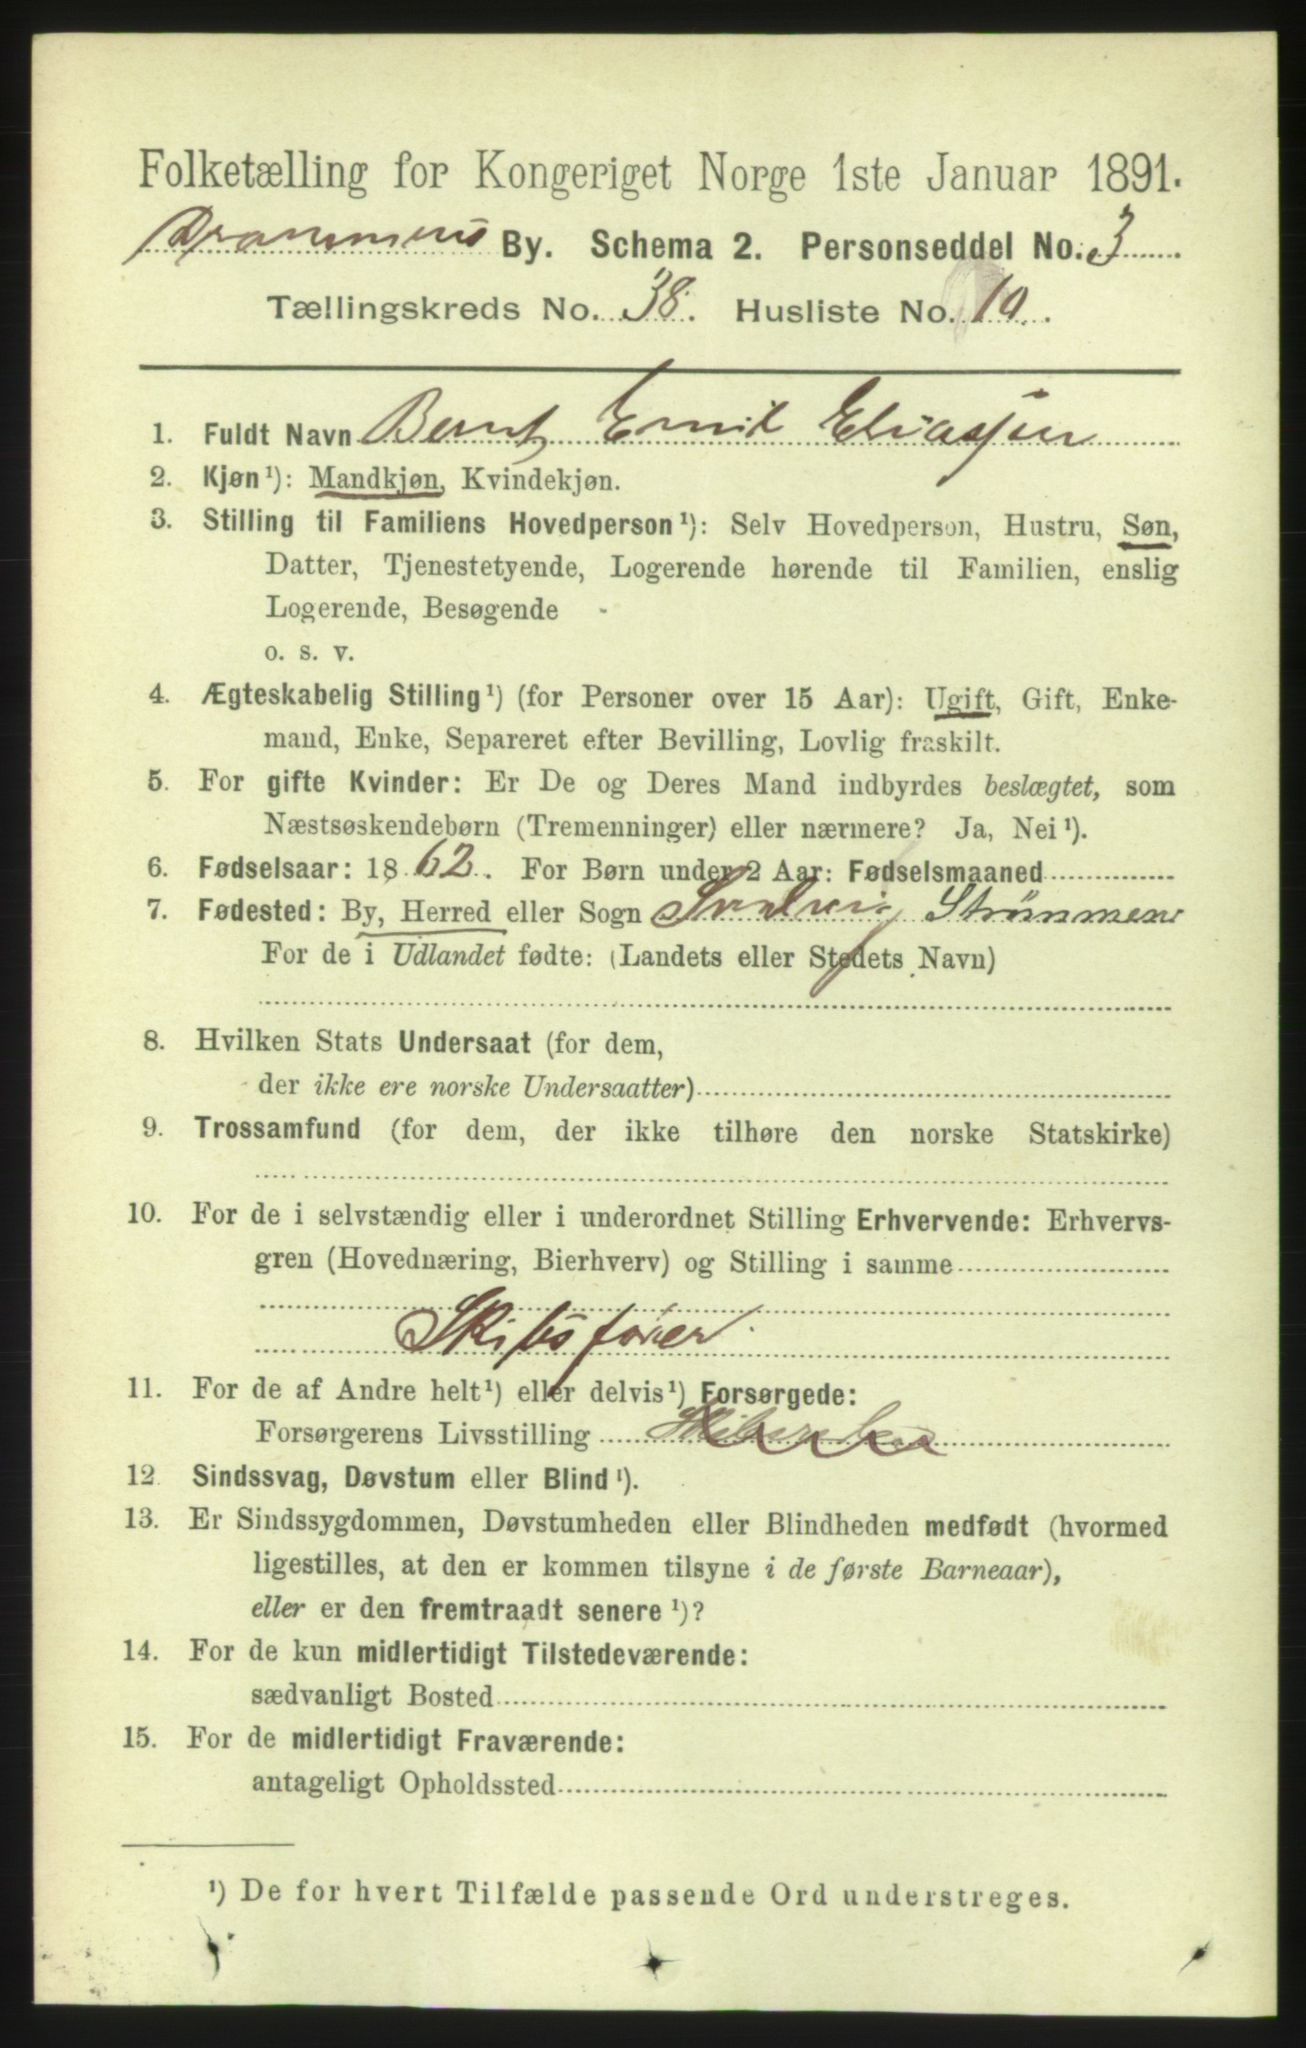 Folketælling for Kongeriget Norge 1ste Januar 1891.
Drammens By. Schema 2. Personseddel No. 3
Tællingskreds No. 38. Husliste No. 10.
1. Fuldt Navn Bernt Emil Eliassen
2. Kjøn¹): Mandkjøn, Kvindekjøn.
3. Stilling til Familiens Hovedperson¹): Selv Hovedperson, Hustru, Søn,
Datter, Tjenestetyende, Logerende hørende til Familien, enslig
Logerende, Besøgende
o. s. v.
4. Ægteskabelig Stilling¹) (for Personer over 15 Aar): Ugift, Gift, Enke-
mand, Enke, Separeret efter Bevilling, Lovlig fraskilt.
5. For gifte Kvinder: Er De og Deres Mand indbyrdes beslægtet, som
Næstsøskendebørn (Tremenninger) eller nærmere? Ja, Nei¹).
6. Fødselsaar: 1862. For Børn under 2 Aar: Fødselsmaaned
7. Fødested: By, Herred eller Sogn Svelvig Strømmen
For de i Udlandet fødte: (Landets eller Stedets Navn)
8. Hvilken Stats Undersaat (for dem,
der ikke ere norske Undersaatter)
9. Trossamfund (for dem, der ikke tilhøre den norske Statskirke)
10. For de i selvstændig eller i underordnet Stilling Erhvervende: Erhvervs-
gren (Hovednæring, Bierhverv) og Stilling i samme
Skibsfører
11. For de af Andre helt¹) eller delvis¹) Forsørgede:
Forsørgerens Livsstilling
12 Sindssvag, Døvstum eller Blind¹).
13. Er Sindssygdommen, Døvstumheden eller Blindheden medfødt (hvormed
ligestilles, at den er kommen tilsyne i de første Barneaar),
eller er den fremtraadt senere¹)?
14. For de kun midlertidigt Tilstedeværende:
sædvanligt Bosted
15. For de midlertidigt Fraværende:
antageligt Opholdssted
¹) De for hvert Tilfælde passende Ord understreges.